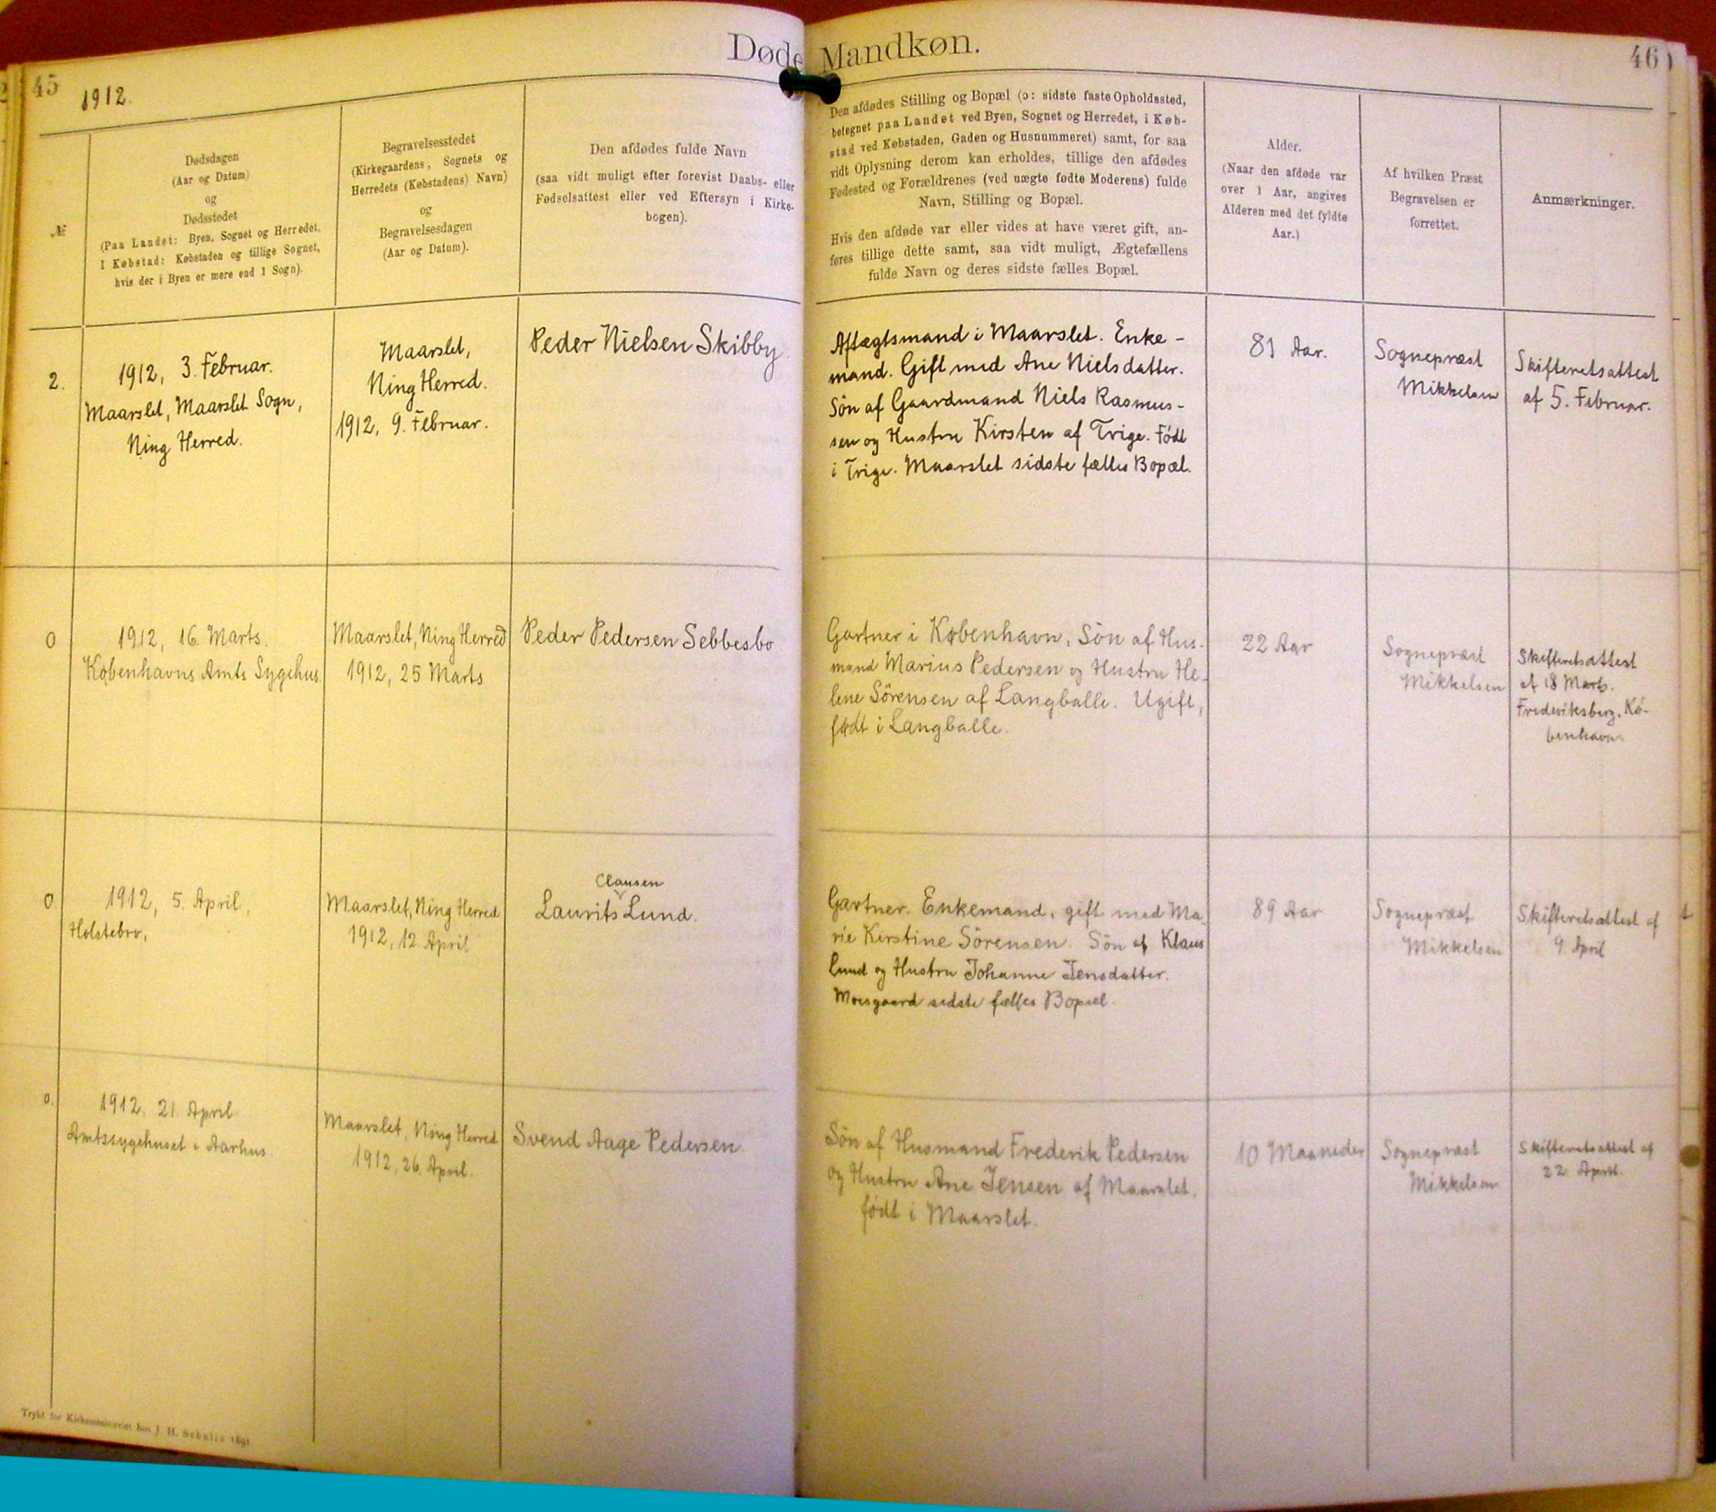 Døde Mandkøn.
45
46
1912.
№
Dødsdagen
(Aar og Datum)
og
Dødsstedet
(Paa Landet: Byen, Sognet og Herredet.
I Købstad: Købstaden og tillige Sognet,
hvis der i Byen er mere end 1 Sogn).
Begravelsesstedet
(Kirkegaardens, Sognets og
Herredets (Købstadens) Navn)
og
Begravelsesdagen
(Aar og Datum).
Den afdødes fulde Navn
(saa vidt muligt efter forevist Daabs- eller
Fødselsattest eller ved Eftersyn i Kirke-
bogen).
Den afdødes Stilling og Bopæl (ɔ: sidste faste Opholdssted,
betegnet paa Landet ved Byen, Sognet og Herredet, i Køb-
stad ved Købstaden, Gaden og Husnummeret) samt, for saa
vidt Oplysning derom kan erholdes, tillige den afdødes
Fødested og Forældrenes (ved uægte fødte Moderens) fulde
Navn, Stilling og Bopæl.
Hvis den afdøde var eller vides at have været gift, an-
føres tillige dette samt, saa vidt muligt, Ægtefællens
fulde Navn og deres sidste fælles Bopæl.
Alder.
(Naar den afdøde var
over 1 Aar, angives
Alderen med det fyldte
Aar.)
Af hvilken Præst
Begravelsen er
forrettet.
Anmærkninger.
2.
1912, 3. Februar.
Maarslet, Maarslet Sogn,
Ning Herred.
Maarslet,
Ning Herred.
1912, 9. Februar.
Peder Nielsen Skibby
Aftægtsmand i Maarslet. Enke-
mand. Gift med Ane Nielsdatter.
Søn af Gaardmand Niels Rasmus-
sen og Hustru Kirsten af Trige. Født
i Trige. Maarslet sidste fælles Bopæl.
81 Aar.
Sognepræst
Mikkelsen
Skifteretsattest
af 5. Februar.
0
1912, 16. Marts.
Københavns Amts Sygehus
Maarslet, Ning Herred
1912, 25 Marts
Peder Pedersen Sebbesbo
Gartner i København. Søn af Hus-
mand Marius Pedersen og Hustru He-
lene Sörensen af Langballe. Ugift,
født i Langballe.
22 Aar
Sognepræst
Mikkelsen
Skifteretsattest
af 18 Marts.
Frederiksberg, Kø-
benhavn
0
1912, 5. April,
Holstebro,
Maarslet, Ning Herred
1912, 12 April
Clausen
Laurits Lund.
Gartner. Enkemand, gift med Ma-
rie Kirstine Sörensen. Søn af Klaus
Lund og Hustru Johanne Jensdatter.
Moesgaard sidste fælles Bopæl.
89 Aar
Sognepræst
Mikkelsen
Skifteretsattest af
9. April
0.
1912. 21. April
Amtssygehuset i Aarhus
Maarslet, Ning Herred
1912, 26. April.
Svend Aage Pedersen
Søn af Husmand Frederik Pedersen
og Hustru Ane Jensen af Maarslet.
født i Maarslet.
10 Maaneder
Sognepræst
Mikkelsen
Skifteretsattest af
22 April.
Trykt for Kirkeministeriet hos J. H. Schultz 1891